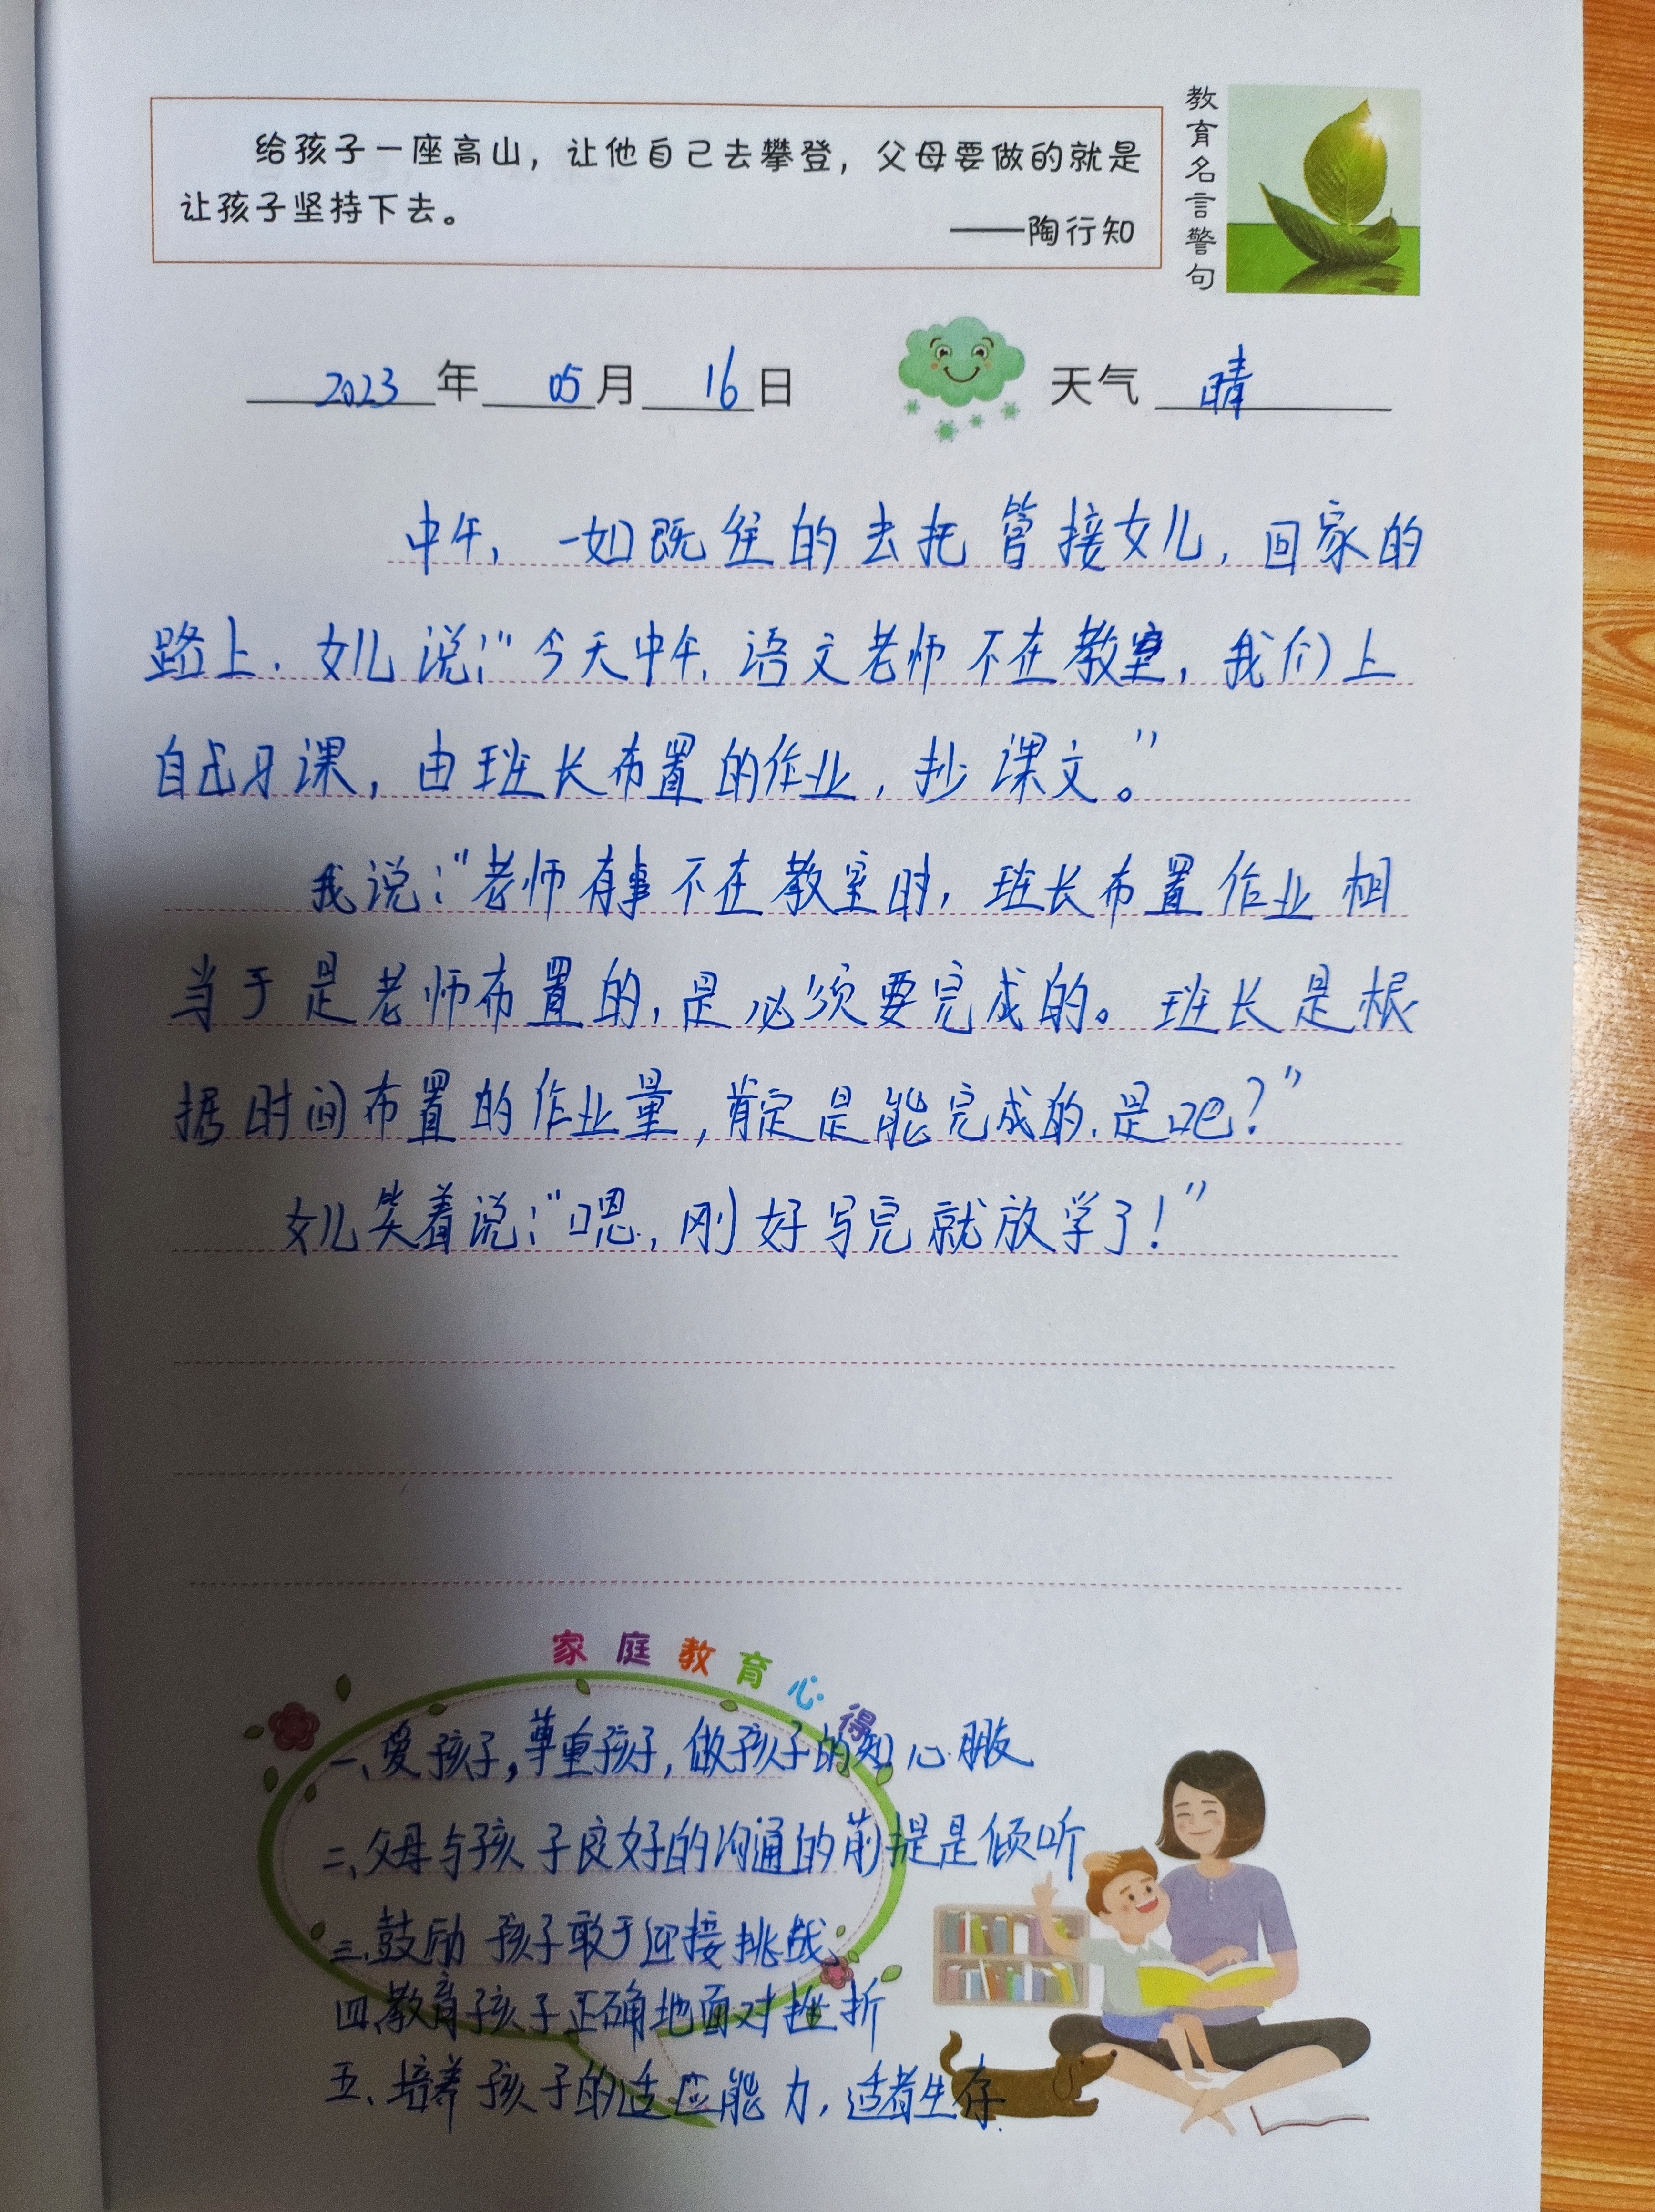 给孩子一座高山，让他自己去攀登，父母要做的就是
让孩子坚持下去。
——陶行知
教育名言警句
2023年05月16日 天气 晴
中午，一如既往的去托管接女儿，回家的
路上．女儿说：“今天中午，语文老师不在教室，我们上
自习课，由班长布置的作业，抄课文。”
我说：“老师有事不在教室时，班长布置作业相
当于是老师布置的，是必须要完成的。班长是根
据时间布置的作业量，肯定是能完成的．是吧？”
女儿笑着说：“嗯，刚好写完就放学了！”
家庭教育心得
一、爱孩子，尊重孩子，做孩子的知心朋友
二、父母与孩子良好的沟通的前提是倾听
三、鼓励孩子敢于迎接挑战、
四、教育孩子正确地面对挫折
五、培养孩子的适应能力，适者生存．